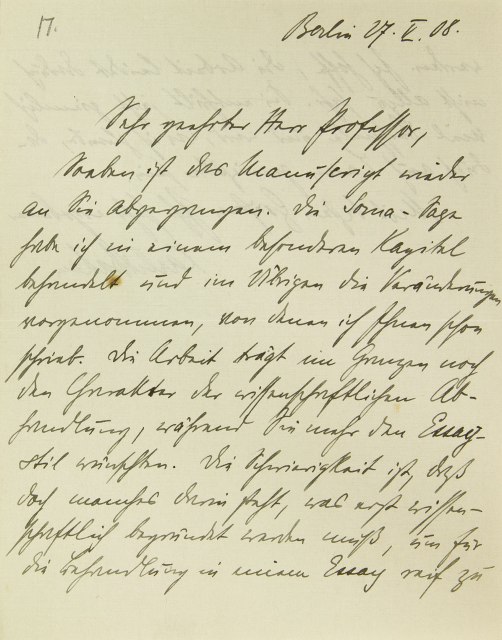 17.
Berlin 27. V. 08.
Sehr geehrter Herr Professor,
Soeben ist das Manuscript wieder
an Sie abgegangen. Die Soma-Sage
habe ich in einem besonderen Kapitel
behandelt und im Übrigen die Veränderungen
vorgenommen, von denen ich Ihnen schon
schrieb. Die Arbeit trägt im Ganzen noch
den Charakter der wissenschaftlichen Ab-
handlung, während Sie mehr den Essay-
stil wünschten. Die Schwierigkeit ist, daß
doch manches darin steht, was erst wissen-
schaftlich begründet werden muß, um für
die Behandlung in einem Essay reif zu